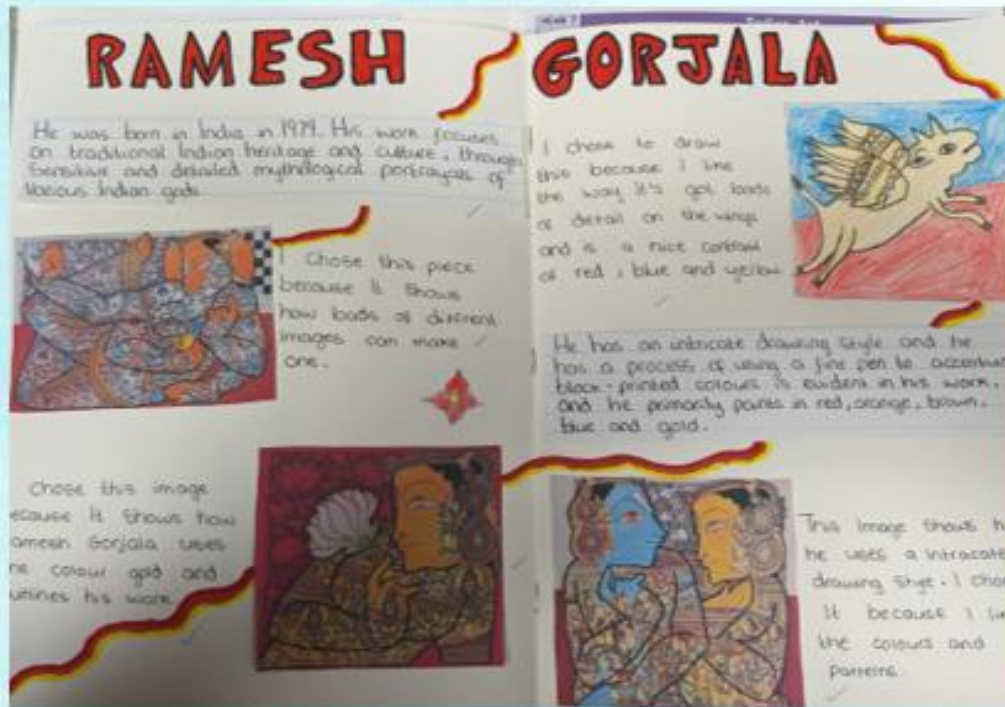 RAMESH GORJALA
He was born in India in 1979. His work focuses
on traditional Indian heritage and culture, through
sensitive and detailed mythological portrayals of
various Indian gods.
I chose this piece
because it shows
how loads of different
images can make
one.
chose this image
ecause it shows how
amesh Gorjala uses
he colour gold and
utlines his work
Indian Art
I chose to draw
this because I like
the way it's got loads
of detail on the wings
and is a nice contrast
of red, blue and yellow
He has an intricate drawing style and he
has a process of using a fine pen to accentu
block-printed colours is evident in his work.
and he primarily paints in red, orange, brown,
blue and gold.
This image shows h
he uses a intracate
drawing style. I cho
it because I li
the colours and
patterns.